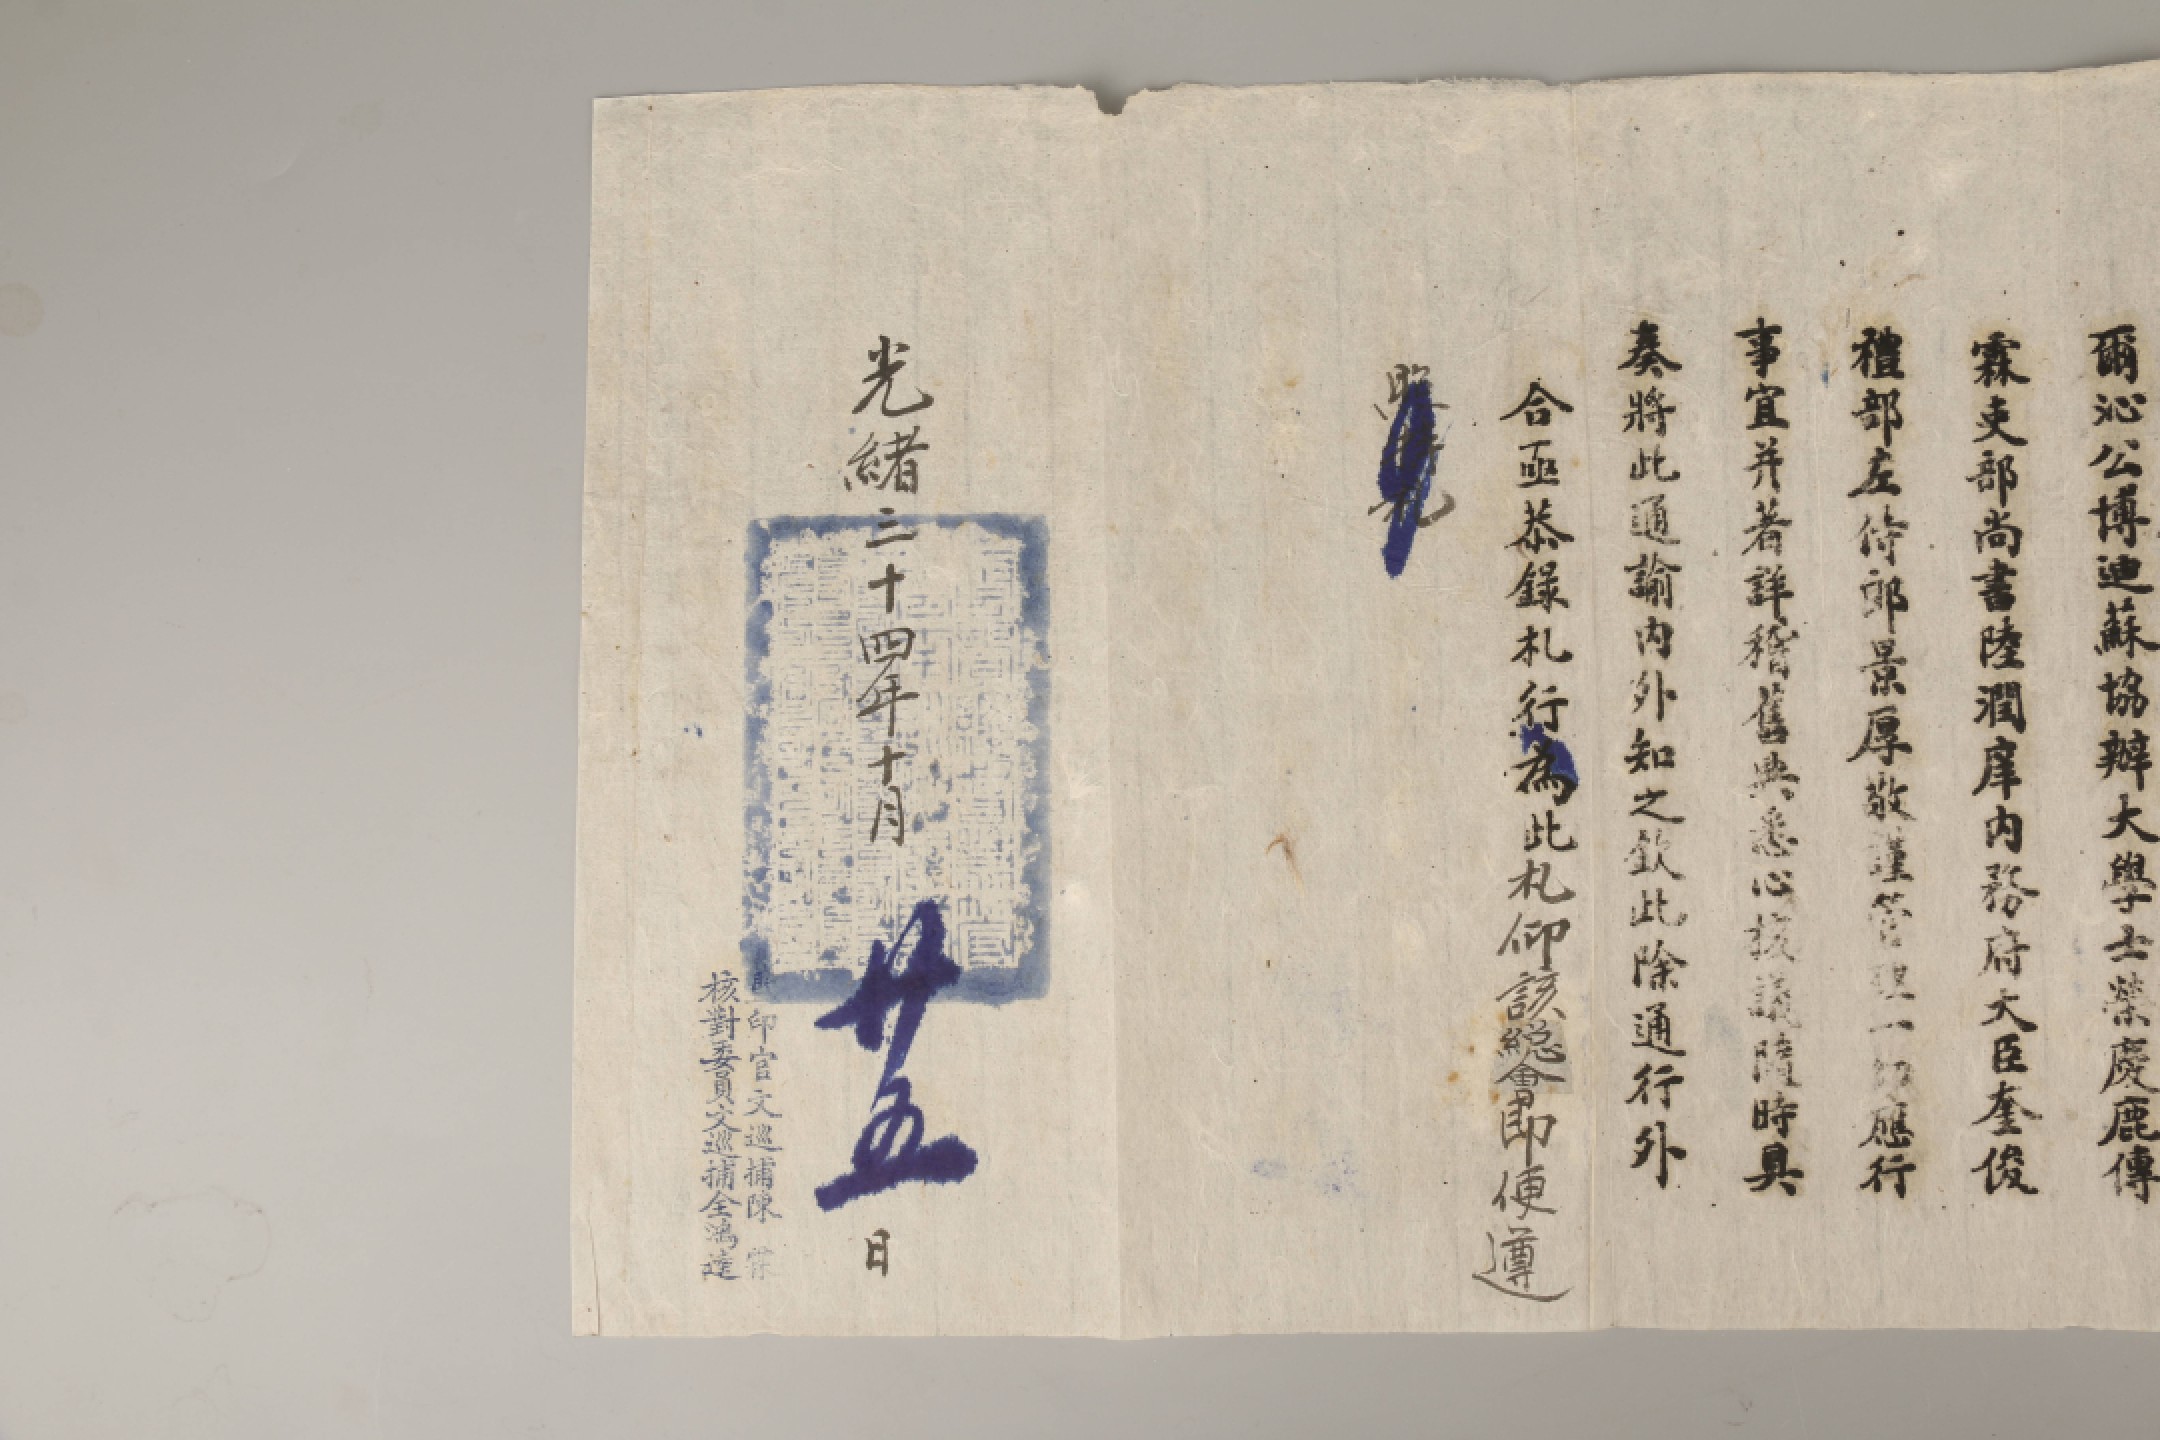 爾沁公博迪蘇協辦大學士榮慶鹿傳
霖吏部尚書陸潤庠內務府大臣奎俊
禮部左侍郎景厚敬謹管理一切應行
事宜并著詳稽舊典悉心核議隨時具
奏將此通諭內外知之欽此除通行外
合亟恭錄札行為此札仰該總會即便遵
照
光緒三十四年十月廿五日
印官文巡捕陳霖
核對委員文巡捕全鴻達